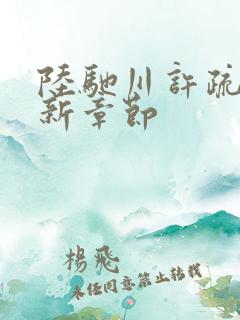 陸馳川許疏
新章節
楊飛
未经同意禁止转载